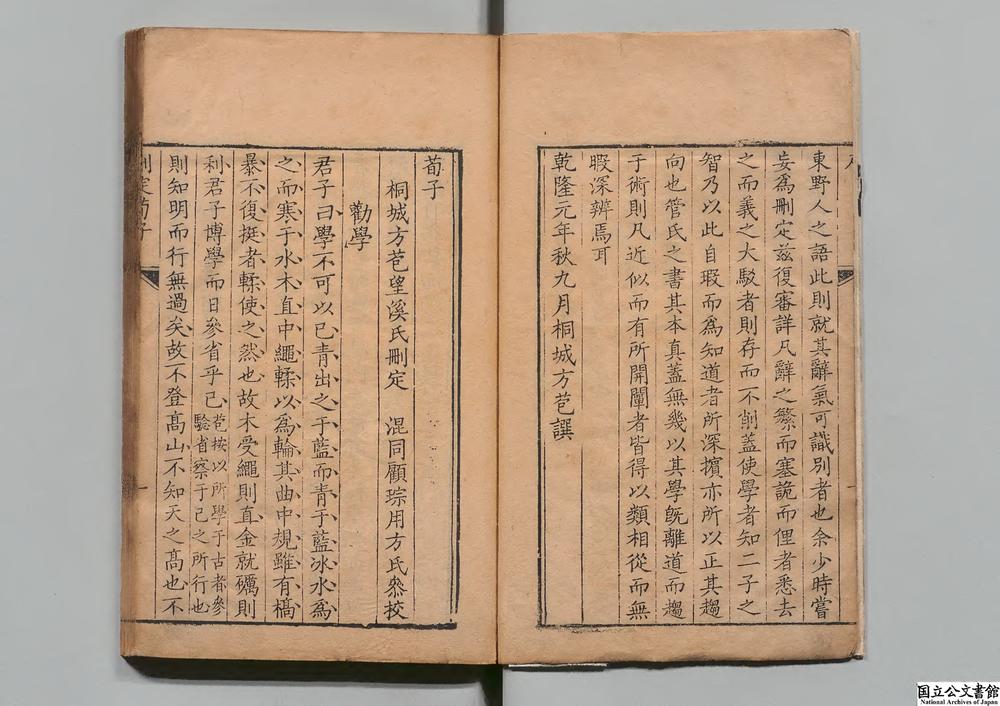 東野人之語此則就其辭氣可識別者也余少時嘗
妄爲刪定兹復審詳凡辭之繁而塞詭而俚者悉去
之而義之大駁者則存而不削蓋使學者知二子之
智乃以此自瑕而爲知道者所深擯亦所以正其趨
向也管氏之書其本真蓋無幾以其學旣離道而趨
于術則凡近似而有所開闡者皆得以類相從而無
暇深辨焉耳
乾隆元年秋九月桐城方苞譔
荀子
桐城方苞望溪氏刪定 混同顧琮用方氏叅校
勸學
君子曰學不可以已青出之于藍而青于藍冰水爲
之而寒于水木直中繩輮以爲輪其曲中規雖有槁
暴不復挺者輮使之然也故木受繩則直金就礪則
利君子博學而日參省乎己苞按以所學于古者參
驗省察于己之所行也
則知明而行無過矣故不登髙山不知天之髙也不
刪定荀子
一
国立公文書館
National Archives of Japan